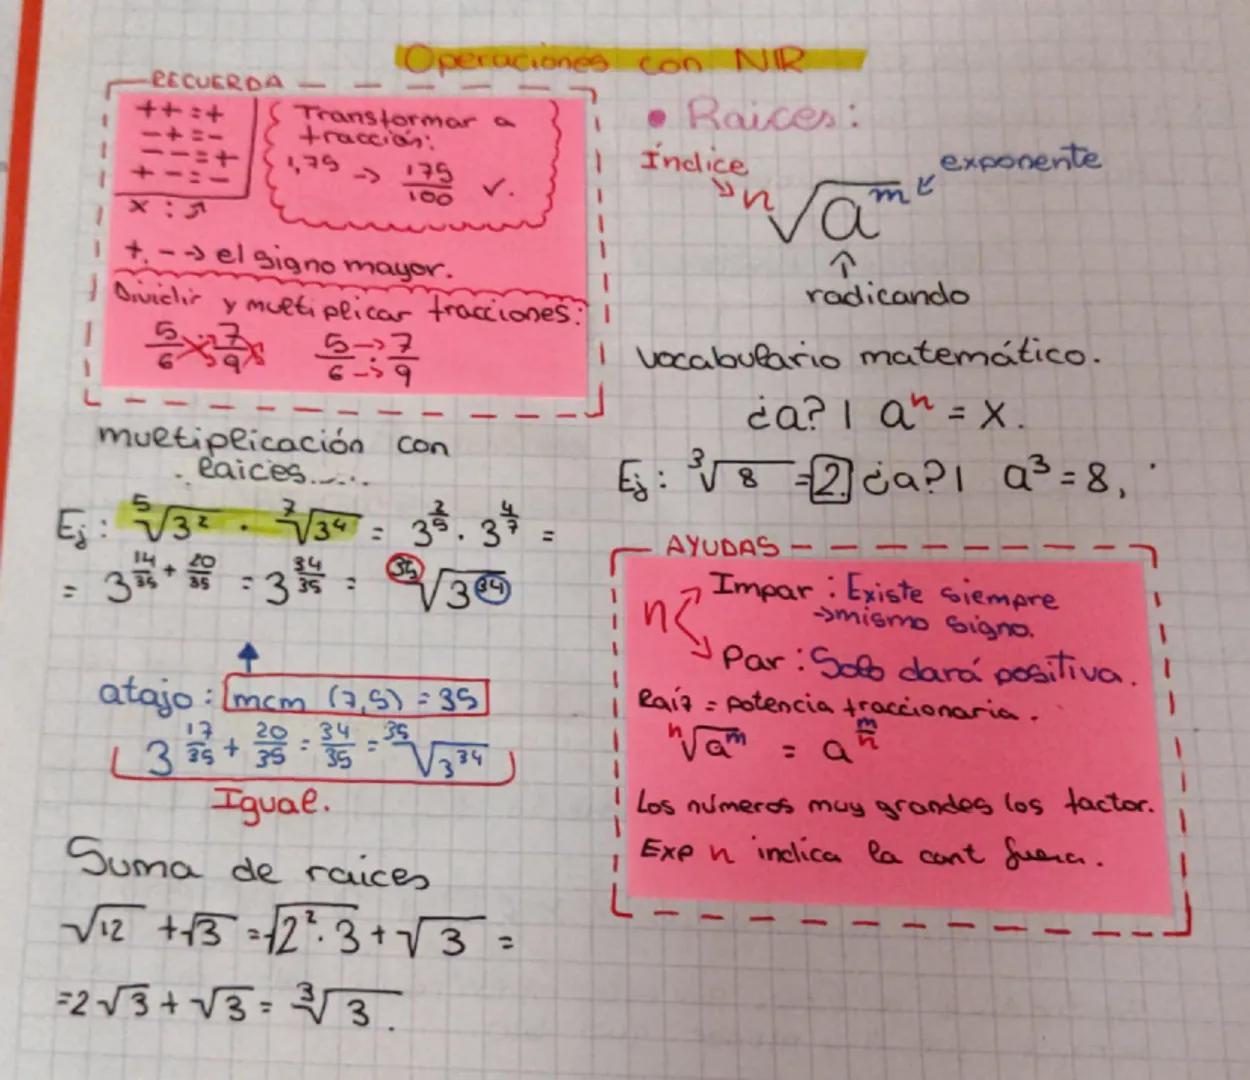 Operaciones con NIR
RECUERDA
++=+
-+=-
--=+
+-=-
x : ↗
Transformar a
fracción:
1,75 → 175/100 ✓.
+, - → el signo mayor.
Dividir y multiplicar fracciones:
5/6 : 7/9   5/6 · 7/9
multiplicación con
raices.....
Ej: ⁵√3² · ⁷√3⁴ = 3^(2/5) · 3^(4/7) =
= 3^(14/35 + 20/35) = 3^(34/35) = ³⁵√3³⁴
atajo: mcm (7,5) = 35
3^(17/35 + 20/35 = 34/35) = ³⁵√3³⁴
Igual.
Suma de raices
√12 + √3 = √2²·3 + √3 =
=2√3 + √3 = ³√3.
• Raices:
Índice
exponente
ⁿ√aᵐ
radicando
Vocabulario matemático.
¿a? | aⁿ = x.
Ej: ³√8 = 2 ¿a? | a³ = 8,
AYUDAS
n
Impar : Existe siempre
→mismo signo.
Par : Solo dará positiva.
Raíz = potencia fraccionaria.
ⁿ√aᵐ = a^(m/n)
Los números muy grandes los factor.
Exp n indica la cant fuera.